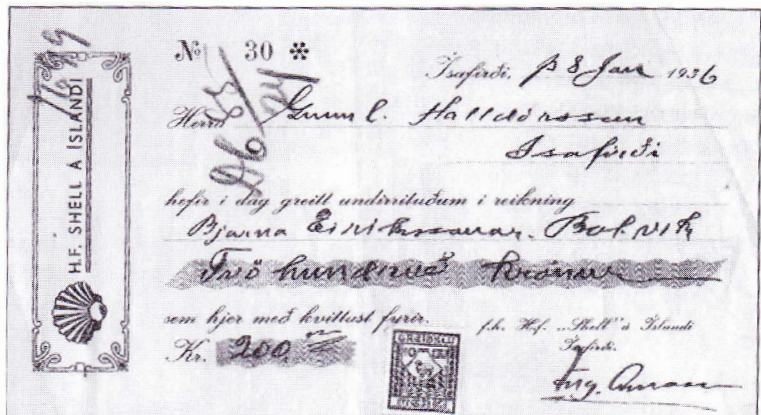 H.F. SHELL Á ÍSLANDI
No 30 *
Ísafirði, 8 Jan 1936
Herra Gunnl. Halldórsson
Ísafirði
hefir í dag greitt undirrituðum í reikning
Bjarna Eiríkssonar. Bol.vík
Tvö hundruð krónur
sem hjer með kvittast fyrir.
Kr. 200
f.h. H.f. „Shell" á Íslandi
Ísafirði.